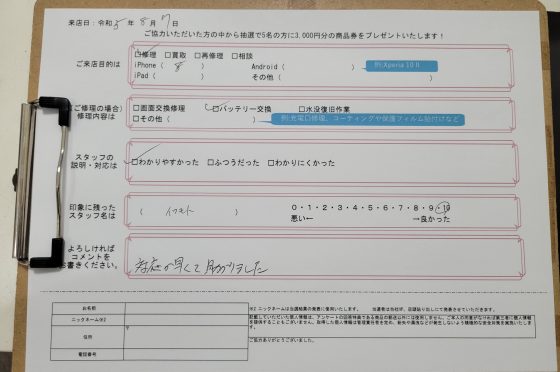 来店日：令和5年8月7日
ご協力いただいた方の中から抽選で5名の方に3,000円分の商品券をプレゼントいたします！
ご来店目的は
☑修理 □買取 □再修理 □相談
iPhone（ 8 ） Android（ ） 例)Xperia 10 II
iPad（ ） その他（ ）
(ご修理の場合)
修理内容は
□画面交換修理 ☑バッテリー交換 □水没復旧作業
□その他（ ） 例)充電口修理、コーティングや保護フィルム貼付けなど
スタッフの
説明・対応は
☑わかりやすかった □ふつうだった □わかりにくかった
印象に残った
スタッフ名は
（ ）
0・1・2・3・4・5・6・7・8・9・10
悪い← →良かった
よろしければ
コメントを
お書きください。
対応が早くて助かりました
お名前
ニックネーム※2
住所
〒
電話番号
※2 ニックネームは当選結果の発表に使用いたします。 当選者は当社HP、店頭貼り出しにて発表させていただきます。
ご協力ありがとうございました。